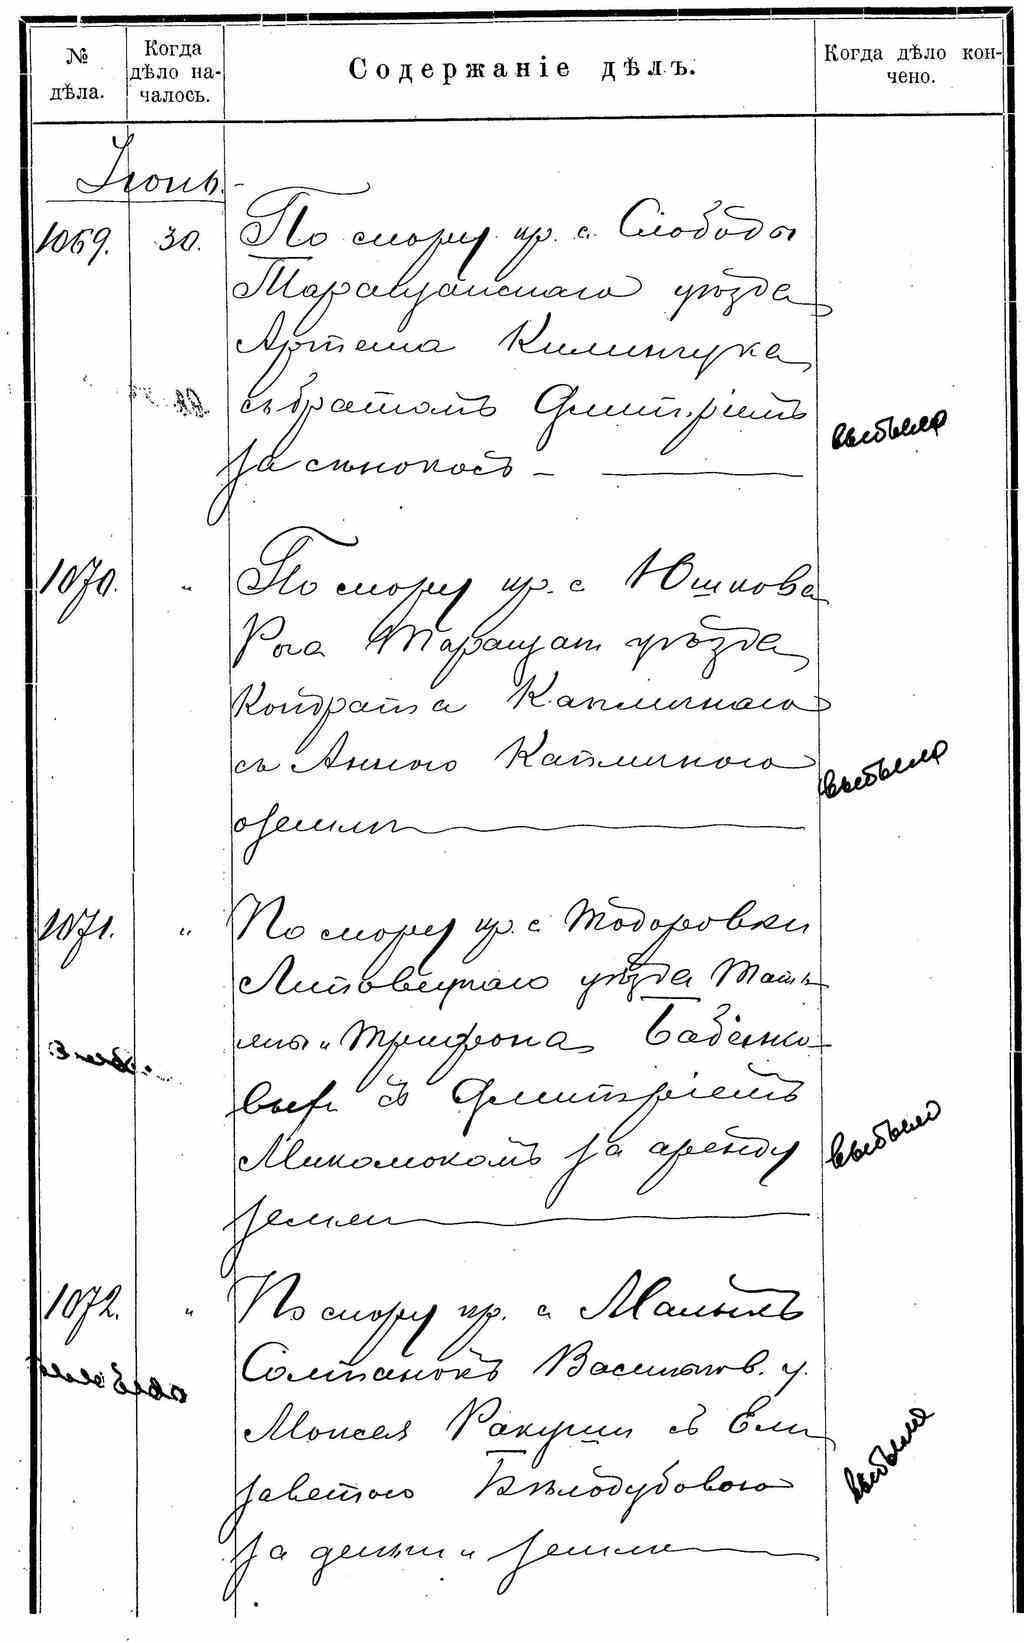 № дѣла.
Когда дѣло на-
чалось.
Содержаніе дѣлъ.
Когда дѣло кон-
чено.
Іюнь.
1069. 30. По спору кр. с. Слободы
Таращанскаго уѣзда
Артема Климчука
съ братомъ Дмитріемъ
за сѣнокосъ
выбыло
1070. " По спору кр. с. Юшкова
Рога Таращан. уѣзда
Кондрата Капличнаго
съ Анною Капличною
о землѣ
выбыло
1071. " По спору кр. с. Тодоровки
Липовецкаго уѣзда Тать-
яны и Трифона Бабенко-
выхъ съ Дмитріемъ
за аренду
земли
выбыло
1072. " По спору кр. с. Малыхъ
Солтанокъ Васильков. у.
Моисея Ракуши съ Ели-
заветою Бѣлодубовою
за деньги и землю
выбыло